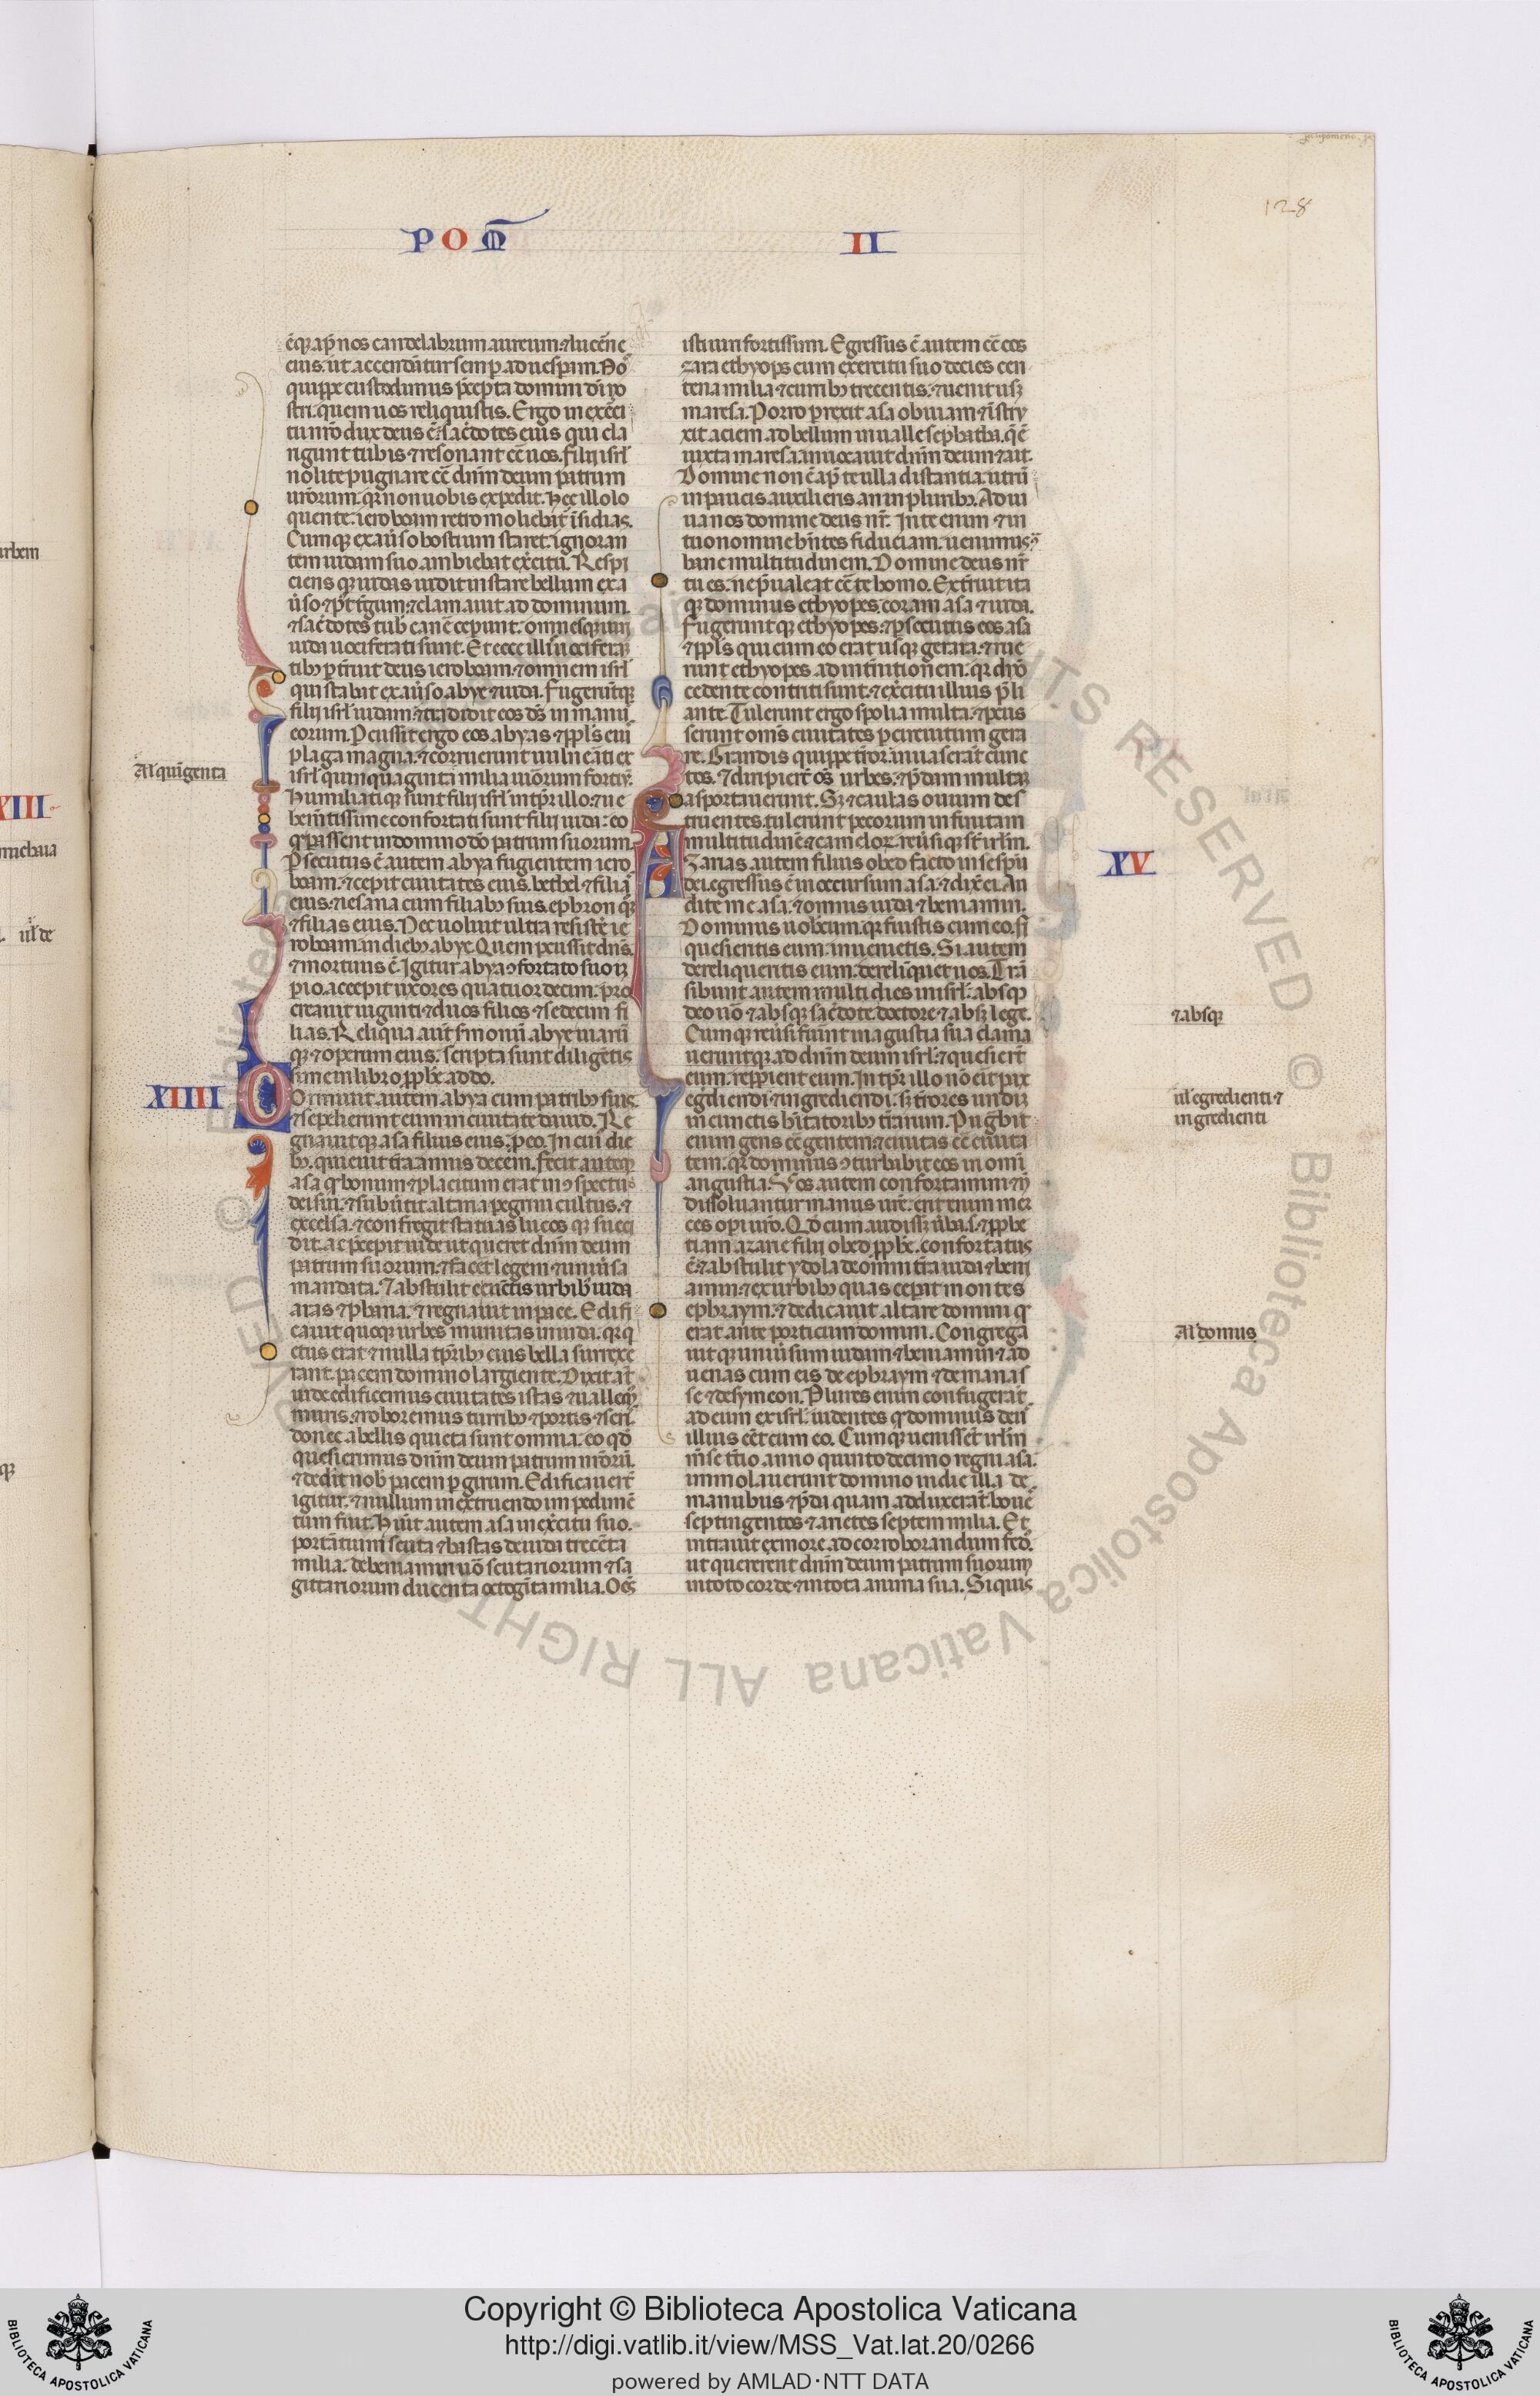 128
POM̅ II
ē. q̨ ap̄ nos candelabrum aureum. ⁊ lucēne
eius. ut accendāntur semp̱ ad uesp̱am. Nos
quippe custodimus p̄cepta domini dī nr̄o
stri. quem uos reliquistis. Ergo in exerci
tu nr̄o dux deus ē. ⁊ sac̄dotes eius qui cla
ngunt tubis ⁊ resonant cē uos. filij isrl̄
nolite pugnare cē dnm̄ deum patrum
ur̄orum. qr̄ non uobis expedit. Hec illo lo
quente. ieroboam retro moliebat᷑ īsidias.
Cumq̨ ex aūso hostium staret. ignoran
tem iudam suo ambiebat exercitū. Respi
ciens q̨ iudas uidit instare bellum ex a
ūso ⁊ p̱t t̄gum. ⁊ clamauit ad dominum.
⁊ sac̄dotes tub̄ canē cep̱unt. omnesq̨ uiri
iuda uociferati sunt. Et ecce illis uociferan
tib; p̱t̄ruit deus ieroboam. ⁊ omnem isrl̄
qui stabat ex aūso abye ⁊ iuda. Fugerūtq̨
filij isrl̄ iudam. ⁊ tradidit eos ds̄ in manu
eorum. Pcussit ergo eos abyas ⁊ ppl̄s eiꝰ
plaga magna. ⁊ corruerunt uulnēati ex
isrl̄ quinquaginta milia uirorum fortiū.
Al quīgenta
Humiliatiq̨ sunt filij isrl̄ in tp̄r illo. ⁊ ue
hem̄tissime confortati sunt filij iuda: eo
q̨ spassent in domino dō patrum suorum.
Psecutus ē autem abya fugientem iero
boam. ⁊ cepit ciuitates eius. bethel ⁊ filiaˢ
eius. ⁊ iesana cum filiab; suis. ephron q̨;
⁊ filias eius. Nec ualuit ultra resistē ie
roboam. in dieb; abye. Quem pcussit dns̄.
⁊ mortuus ē. Igitur abya ꝯfortato suo im
p̱io. accepit uxores quatuordecim. pro
creauit uiginti ⁊ duos filios ⁊ sedecim fi
lias. Reliqua aut̄ s̄monū abye uiarū
q̨; ⁊ operum eius. scripta sunt diligētis
sime in libro ꝓph̄e addo.
XIIII
Dormiuit autem abya cum patrib; suis.
⁊ sepelierunt eum in ciuitate dauid. Re
gnauitq̨ asa filius eius. p̱ eo. In cuiꝰ die
b;. quieuit t̄ra annis decem. Fecit autēq̨
asa q̨ bonum ⁊ placitum erat in ꝯspectu
dei sui. ⁊ subūtit altaria pegrini cultus. ⁊
excelsa. ⁊ confregit statuas lucos q̨ succi
dit. ac p̄cepit iude ut queret dnm̄ deum
patrum suorum. ⁊ facet legem ⁊ uniūsa
mandata. ⁊ abstulit ecūctis urbib; iuda
aras ⁊ phana. ⁊ regnauit in pace. Edifi
cauit quoq̨ urbes munitas in iuda. qr̄ q̨
etus erat ⁊ nulla tp̄rib; eius bella surrexe
rant. pacem domino largiente. Dixit at᷑
iude edificemus ciuitates istas ⁊ uallemꝰ
muris. ⁊ roboremus turrib; ⁊ portis ⁊ seris
donec a bellis quieta sunt omnia. eo qd̄
quesierimus dnm̄ deum patrum nr̄orū.
⁊ dedit nob̄ pacem p̱ girum. Edificauert̄
igitur. ⁊ nullum in extruendo impedimē
tum fuit. Huit autem asa in exercitu suo.
portātium scuta ⁊ hastas de iuda trecēta
milia. de beniamin uō scutariorum ⁊ sa
gittariorum ducenta octogīta milia. Oēs
isti uiri fortissimi. Egressus ē autem cē eos
zara ethyops cum exercitu suo decies cen
tena milia ⁊ currib; trecentis. ⁊ uenit us̨;
maresa. Porro prexit asa obuiam ⁊ ī stru
xit aciem ad bellum in ualle sephatha. q̄ ē
iuxta maresa. inuocauit dnm̄ deum ⁊ ait.
Domine non ē ap̄ te ulla distantia. utrū
in paucis auxilieris. an in plurib;. Adiu
ua nos domine deus nr̄. In te enim ⁊ in
tuo nomine hn̄tes fiduciam. uenimus
hanc multitudinem. Domine deus nr̄
tu es. ne p̄ualeat cē te homo. Exteruit ita
q̨ dominus ethyopes. coram asa ⁊ iuda.
Fugeruntq̨ ethyopes. ⁊ psecutus eos asa
⁊ ppl̄s qui cum eo erat usq̨ gerara. ⁊ rue
runt ethyopes ad intn̄itionem. qr̄ dn̄o
cedente contriti sunt. ⁊ exercitu illius p̄li
ante. Tulerunt ergo spolia multa. ⁊ pcus
serunt om̄s ciuitates p circuitum gera
re. Grandis quippe t̄ror inuaserat cunc
tos. ⁊ diripiert̄ os̄ urbes. ⁊ p̄dam multam
asportauerunt. S; ⁊ caulas ouium des
truentes. tulerunt pecorum infinitam
multitudinē ⁊ camelor̄. reūsiq̨ sūt irl̄m.
XV
Azarias autem filius obed facto in se spū
dei. egressus ē in occursum asa. ⁊ dix̄ ei. Au
dite me asa. ⁊ omnis iuda ⁊ beniamin.
Dominus uobiscum. qr̄ fuistis cum eo. si
quesieritis eum. inuenietis. Si autem
dereliqueritis eum. derelīquet uos. Trā
sibunt autem multi dies in isrl̄. absq̨
deo uō ⁊ absq̨ sac̄dote. doctore. ⁊ abs̨; lege.
⁊ absq̨
Cumq̨ reūsi fuint in agustia sua clama
ueruntq̨ ad dnm̄ deum isrl̄. ⁊ quesiert̄
eum. repperient eum. In tp̄r illo nō erit pax
egrediendi ⁊ ingrediendi. s; t̄rores undiq̨;
ul᷑ egredienti ⁊
ingredienti
in cunctis hītatorib; t̄rarum. Pugb̄it
enim gens cē gentem. ⁊ ciuitas cē ciuita
tem. qr̄ dominus ꝯturbabit eos in omni
angustia. Vos autem confortamini. ⁊ n̄
dissoluantur manus ur̄e. erit enim mer
ces opi ur̄o. Qd̄ cum audiss; ūba s. ⁊ ꝓphe
tiam azarie filij obed ꝓph̄e. confortatus
ē. ⁊ abstulit ydola de omni t̄ra iuda ⁊ beni
amin. ⁊ ex urbib; quas cepit montes
ephraym. ⁊ dedicauit altare domini q̨
erat ante porticum domini. Congrega
Al᷑ domus
uitq̨ uniūsum iudam ⁊ beniamin. ⁊ ad
uenas cum eis de ephraym ⁊ de manas
se ⁊ de symeon. Plures enim confugerāt
ad eum ex isrl̄. uidentes q̨ dominus deus
illius eēt cum eo. Cumq̨ uenissēt irl̄m
mense t̄tio. anno quinto decimo regni asa.
immolauerunt domino in die illa de
manubus ⁊ p̄da quam adduxerāt. boues
septingentos ⁊ arietes septem milia. Et
intrauit ex more ad corroborandum fedꝰ.
ut quererent dnm̄ deum patrum suorum
in toto corde ⁊ in tota anima sua. Siquis
Copyright © Biblioteca Apostolica Vaticana
http://digi.vatlib.it/view/MSS_Vat.lat.20/0266
powered by AMLAD·NTT DATA